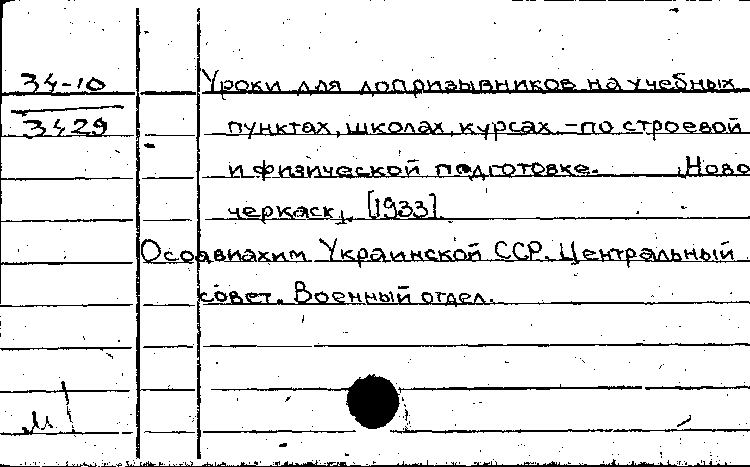 34-10
3429
Уроки для допризывников на учебных
пунктах, школах, курсах - по строевой
и физической подготовке. Ново
черкаск, [1933].
Осоавиахим Украинской ССР. Центральный
совет. Военный отдел.